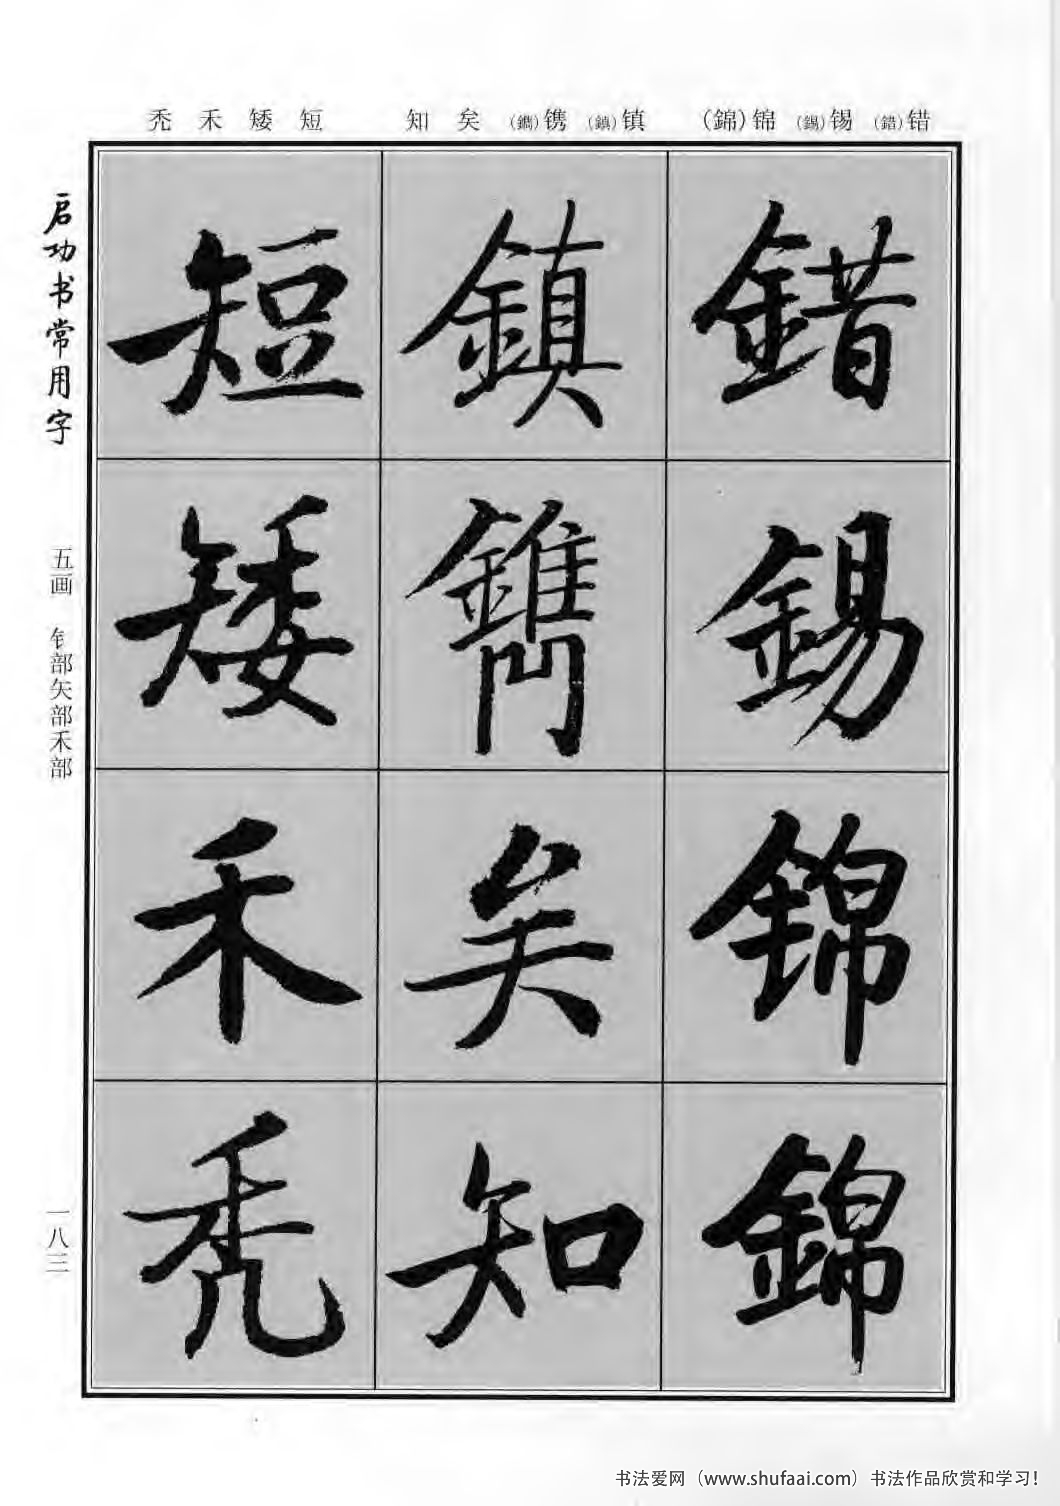 错(錯) 锡(錫) 锦(錦) 镇(鎮) 镌(鐫) 矣 知 短 矮 禾 秃
錯錫锦錦
鎮鐫矣知
短矮禾秃
启功书常用字
五画 钅部矢部禾部
一八三
书法爱网（www.shufaai.com）书法作品欣赏和学习！